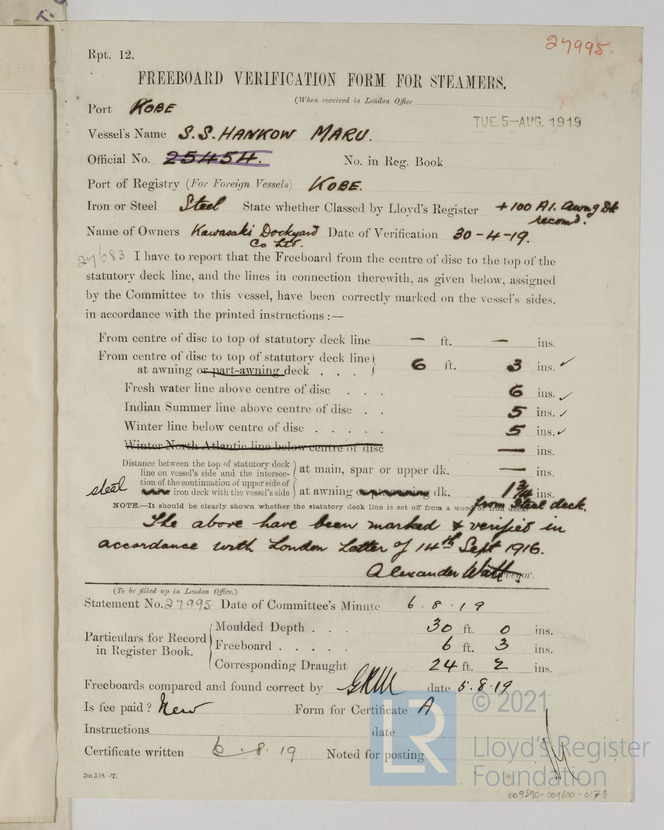 27995.
Rpt. 12.
FREEBOARD VERIFICATION FORM FOR STEAMERS.
(When received in London Office
Port KOBE
TUE. 5-AUG. 1919
Vessel's Name S.S. HANKOW MARU.
Official No. 25454. No. in Reg. Book
Port of Registry (For Foreign Vessels) KOBE.
Iron or Steel Steel State whether Classed by Lloyd's Register +100 A1. Awng Dk
record.
Name of Owners Kawasaki Dockyard Date of Verification 30-4-19.
Co Ltd.
27683 I have to report that the Freeboard from the centre of disc to the top of the
statutory deck line, and the lines in connection therewith, as given below, assigned
by the Committee to this vessel, have been correctly marked on the vessel's sides,
in accordance with the printed instructions :—
From centre of disc to top of statutory deck line — ft. — ins.
From centre of disc to top of statutory deck line
at awning or part-awning deck . . . 6 ft. 3 ins. ✓
Fresh water line above centre of disc . . . 6 ins. ✓
Indian Summer line above centre of disc . . 5 ins. ✓
Winter line below centre of disc . . . . . 5 ins. ✓
Winter North Atlantic line below centre of disc — ins.
Distance between the top of statutory deck
line on vessel's side and the intersec-
tion of the continuation of upper side of
steel iron deck with the vessel's side
at main, spar or upper dk. — ins.
at awning dk. 1 3/4 ins.
from steel deck.
NOTE.—It should be clearly shown whether the statutory deck line is set off from a wood or iron deck.
The above have been marked & verified in
accordance with London Letter of 14th Sept 1916.
Alexander Watt
(To be filled up in London Office.)
Statement No. 27995 Date of Committee's Minute 6.8.19
Particulars for Record
in Register Book.
Moulded Depth . . . 30 ft. 0 ins.
Freeboard . . . . . 6 ft. 3 ins.
Corresponding Draught 24 ft. 2 ins.
Freeboards compared and found correct by date 5.8.19
Is fee paid? New Form for Certificate A
Instructions date
Certificate written 6.8.19 Noted for posting
2m,3,18.-T.
LR
© 2021
Lloyd's Register
Foundation
009590-009600-0178